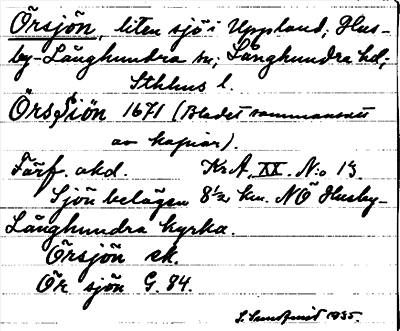 Örsjön, liten sjö i Uppland; Hus-
by-Långhundra sn; Långhundra hd;
Sthlms l.
Örssiön 1671 (Bladet sammansatt
av kopior).
Färf. akd. KrA. XX. N:o 13.
Sjön belägen 8½ km. NÖ Husby-
Långhundra kyrka.
Örsjön ek.
Ör sjön G. 84.
S. Sundqvist 1935.